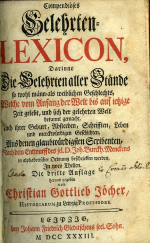 Compendiöses
Gelehrten-
LEXICON,
Darinne
Die Gelehrten aller Stände
so wohl männ- als weiblichen Geschlechts,
Welche vom Anfang der Welt bis auf ietzige
Zeit gelebt, und sich der gelehrten Welt
bekannt gemacht,
Nach ihrer Geburt, Absterben, Schrifften, Leben
und merckwürdigen Geschichten,
Aus denen glaubwürdigsten Scribenten
Nach dem Entwurff des sel. D. Joh. Burckh. Menckens
in alphabetischer Ordnung beschrieben werden.
In zwey Theilen.
Die dritte Auflage
heraus gegeben
von
Christian Gottlieb Jöcher,
HISTORIARUM in Leipzig PROFESSORE.
LEIPZIG,
bey Johann Friedrich Gleditschens sel. Sohn.
M DCC XXXIII.